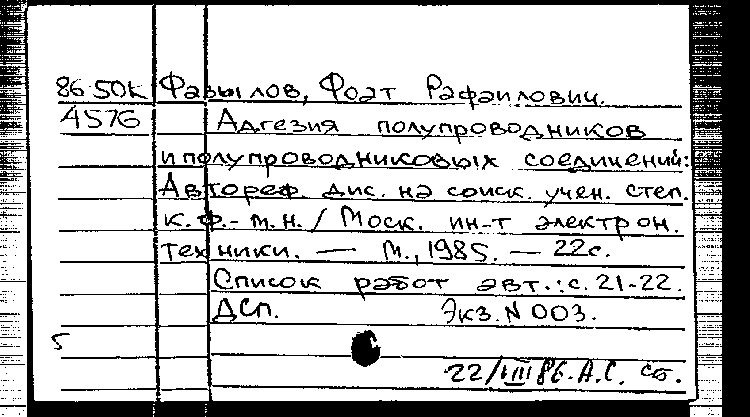 86-50К Фазылов, Фоат Рафаилович.
4576 Адгезия полупроводников
и полупроводниковых соединений:
Автореф. дис. на соиск. учен. степ.
к. ф.-м. н. / Моск. ин-т электрон.
техники. — М., 1985. — 22с.
Список работ авт.: с. 21-22.
ДСП. Экз. N 003.
5
22/VIII 86. А.С.